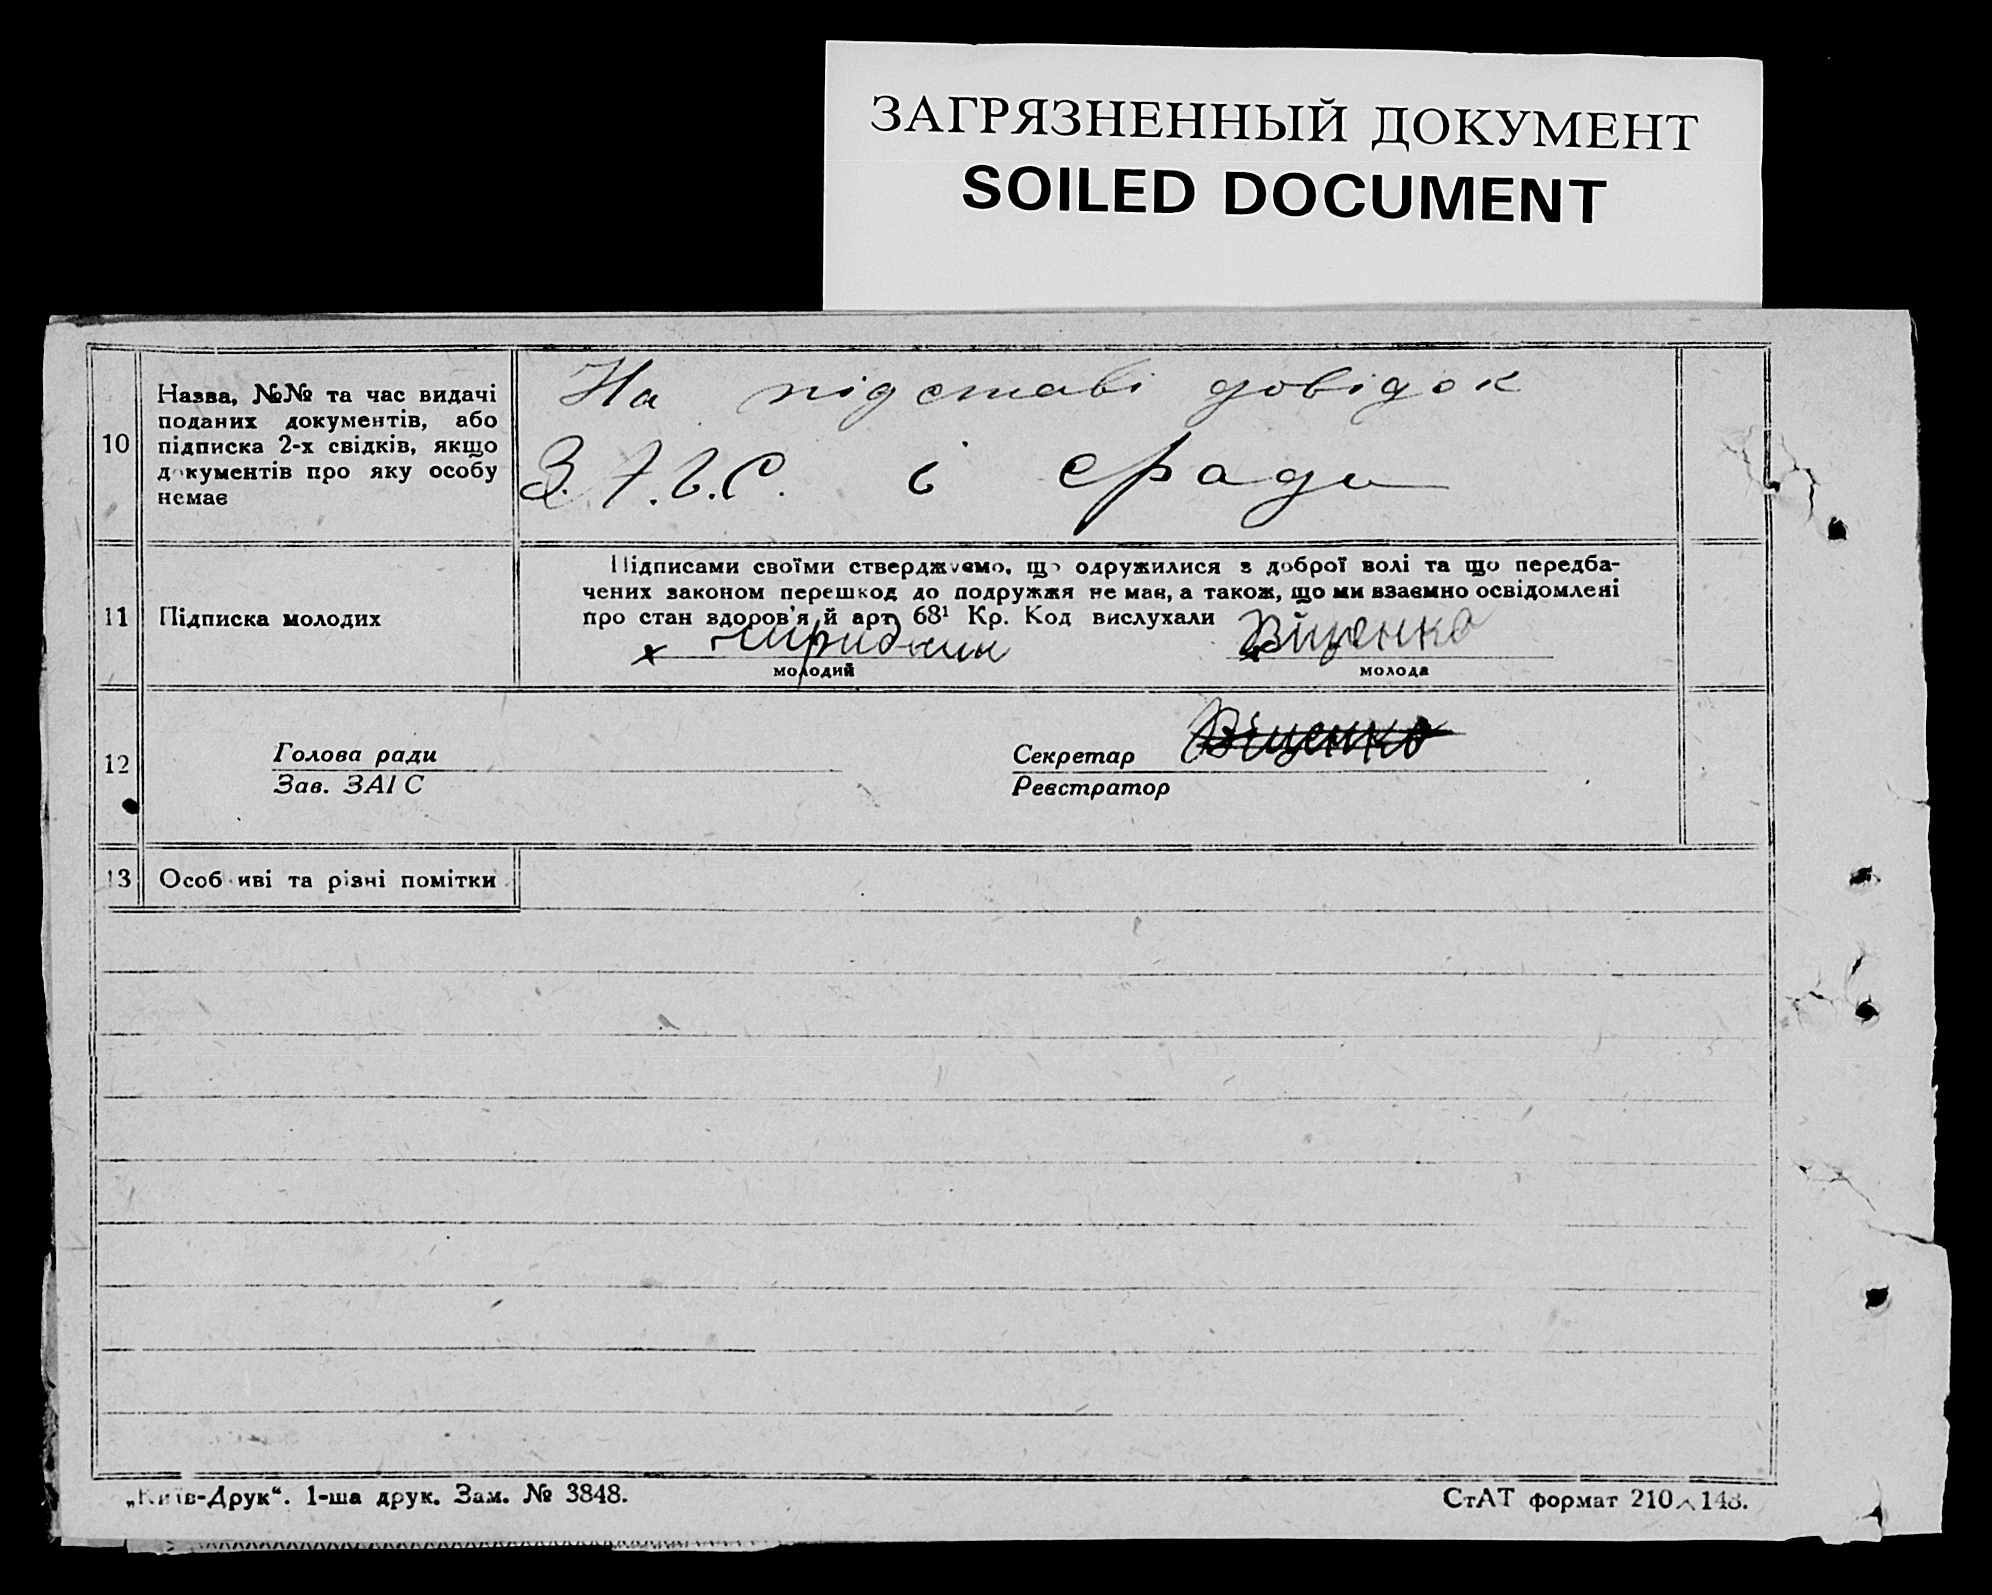 ЗАГРЯЗНЕННЫЙ ДОКУМЕНТ
SOILED DOCUMENT
10
Назва, №№ та час видачі
поданих документів, або
підписка 2-х свідків, якщо
документів про яку особу
немає
На підставі довідок
З.А.Г.С. і сради
11
Підписка молодих
Підписами своїми стверджуємо, що одружилися з доброї волі та що передба-
чених законом перешкод до подружжя не має, а також, що ми взаємно освідомлені
про стан здоров'я й арт 68¹ Кр. Код вислухали
х
Віценко
молодий
молода
12
Голова ради
Зав. ЗАГС
Секретар
Віценко
Реєстратор
13
Особливі та різні помітки
„Київ-Друк“. 1-ша друк. Зам. № 3848.
СтАТ формат 210×148.